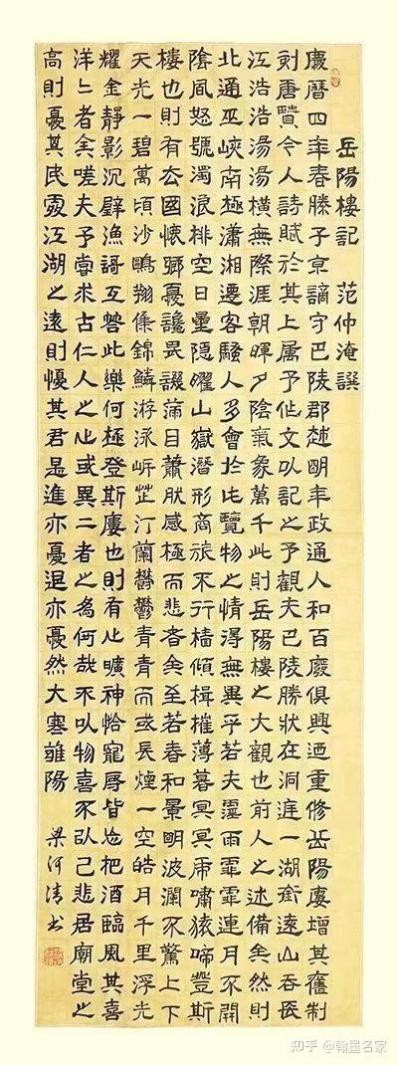 岳陽樓記 范仲淹撰
慶曆四年春滕子京謫守巴陵郡越明年政通人和百廢俱興迺重修岳陽樓增其舊制
刻唐賢今人詩賦於其上属予作文以記之予觀夫巴陵勝狀在洞庭一湖銜遠山吞長
江浩浩湯湯橫無際涯朝暉夕陰氣象萬千此則岳陽樓之大觀也前人之述備矣然則
北通巫峽南極瀟湘遷客騷人多會於此覽物之情得無異乎若夫霪雨霏霏連月不開
陰風怒號濁浪排空日星隱曜山嶽潛形商旅不行檣傾楫摧薄暮冥冥虎嘯猿啼登斯
樓也則有去國懷鄉憂讒畏譏滿目蕭然感極而悲者矣至若春和景明波瀾不驚上下
天光一碧萬頃沙鷗翔集錦鱗游泳岸芷汀蘭鬱鬱青青而或長煙一空皓月千里浮光
耀金靜影沉璧漁歌互答此樂何極登斯樓也則有心曠神怡寵辱皆忘把酒臨風其喜
洋洋者矣嗟夫予嘗求古仁人之心或異二者之為何哉不以物喜不以己悲居廟堂之
高則憂其民處江湖之遠則憂其君是進亦憂退亦憂然大塞雖陽 梁河清书
知乎 @翰墨名家